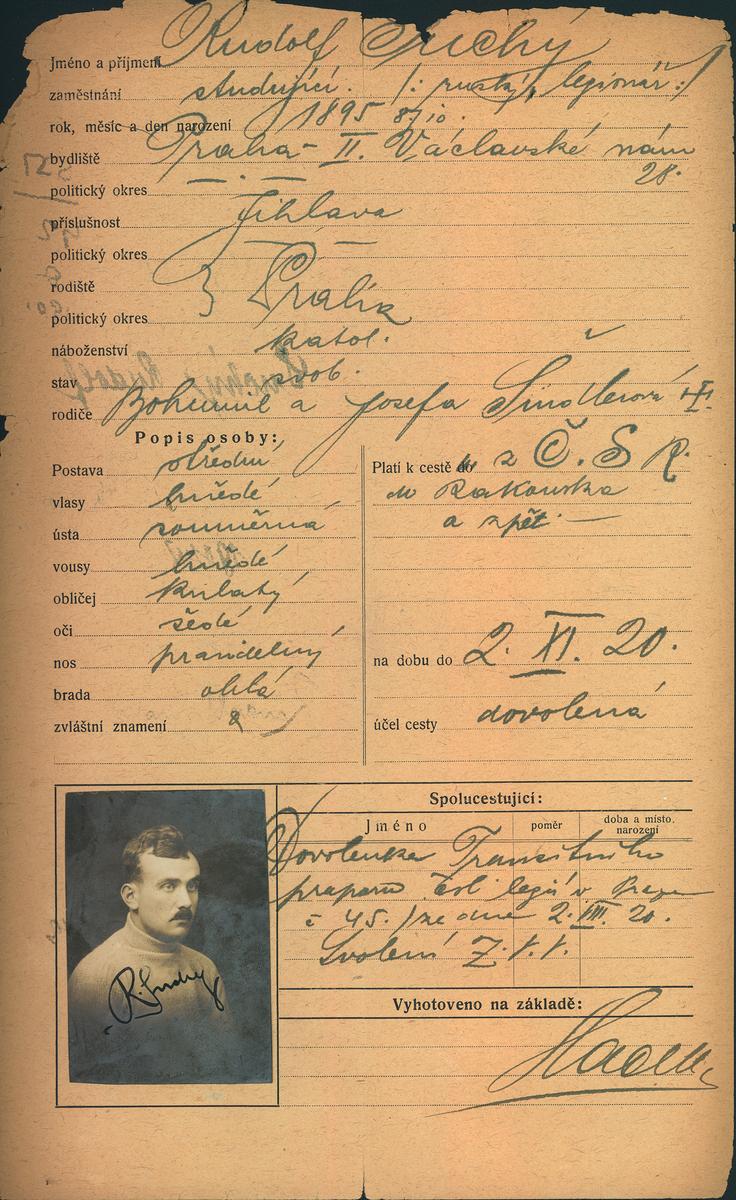 Jméno a příjmení Rudolf Suchý
zaměstnání studující. /: ruský legionář :/
rok, měsíc a den narození 1895 8/10.
bydliště Praha - II. Václavské nám
28.
politický okres
příslušnost Jihlava
politický okres
rodiště } Praha
politický okres
náboženství katol.
stav svob.
rodiče Bohumil a Josefa Šindlerová
Popis osoby:
Postava střední
vlasy hnědé
ústa souměrná
vousy hnědé
obličej kulatý
oči šedé
nos pravidelný
brada oblá
zvláštní znamení
Platí k cestě do z Č. S R.
do Rakouska
a zpět. —
na dobu do 2. XI. 20.
účel cesty dovolená
Spolucestující:
Jméno poměr doba a místo. narození
Dovolenka Transitního
praporu čsl legií v Praze
č 45. / ze dne 2. VIII. 20.
Svolení
Vyhotoveno na základě:
R. Suchý